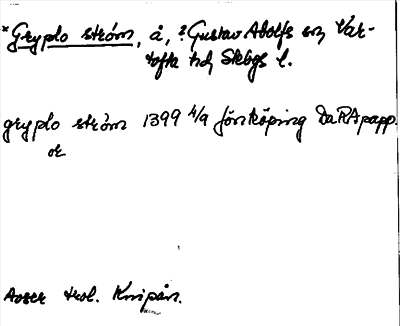 *Gryplo ström, å, ?Gustav Adolfs sn, Var-
tofta hd, Skbgs l.
gryplo ström 1399 4/9 Jönköping DaRApapp.
or
Avser trol. Knipån.